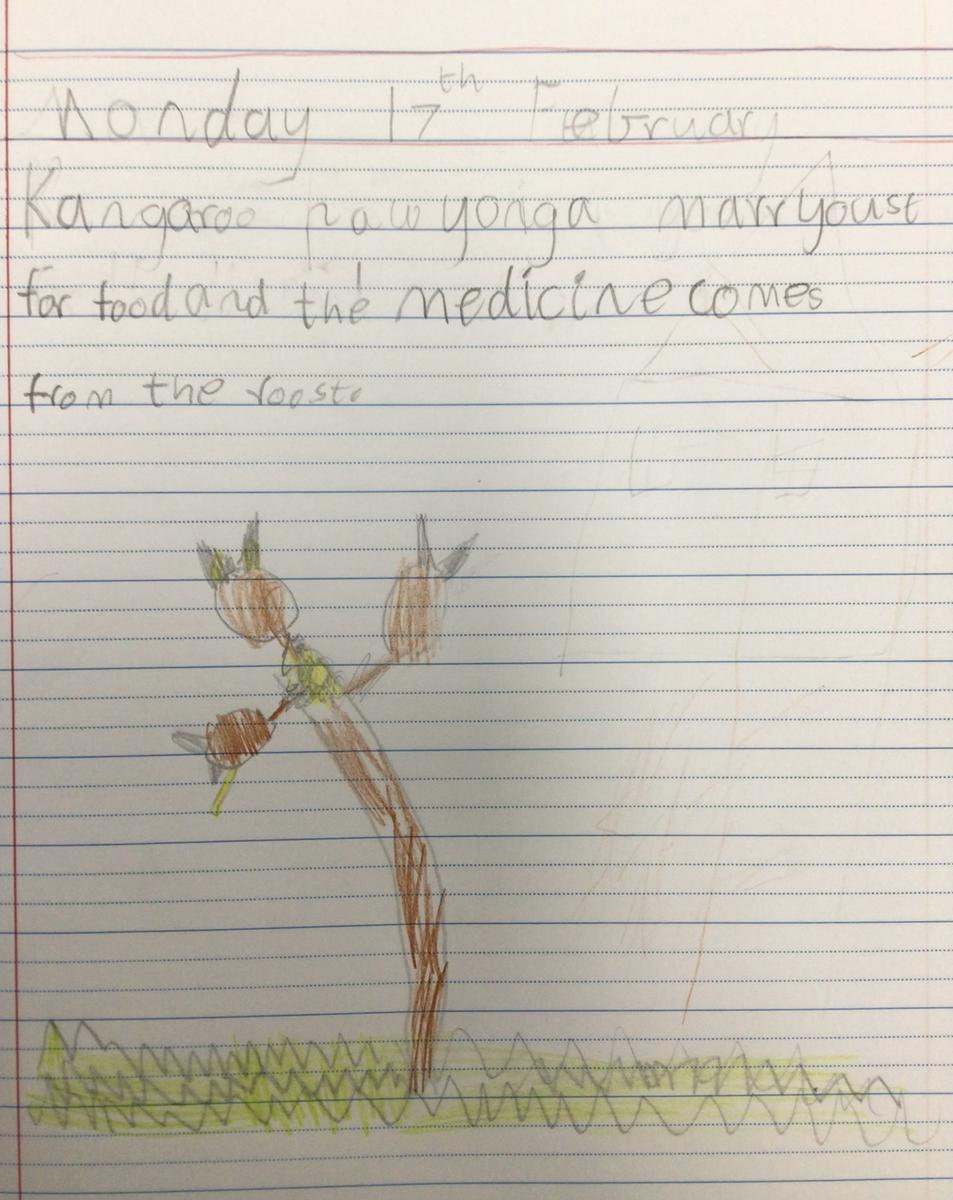 Monday 17th February
Kangaroo paw yonga marr youst
for food and the medicine comes
from the roost.